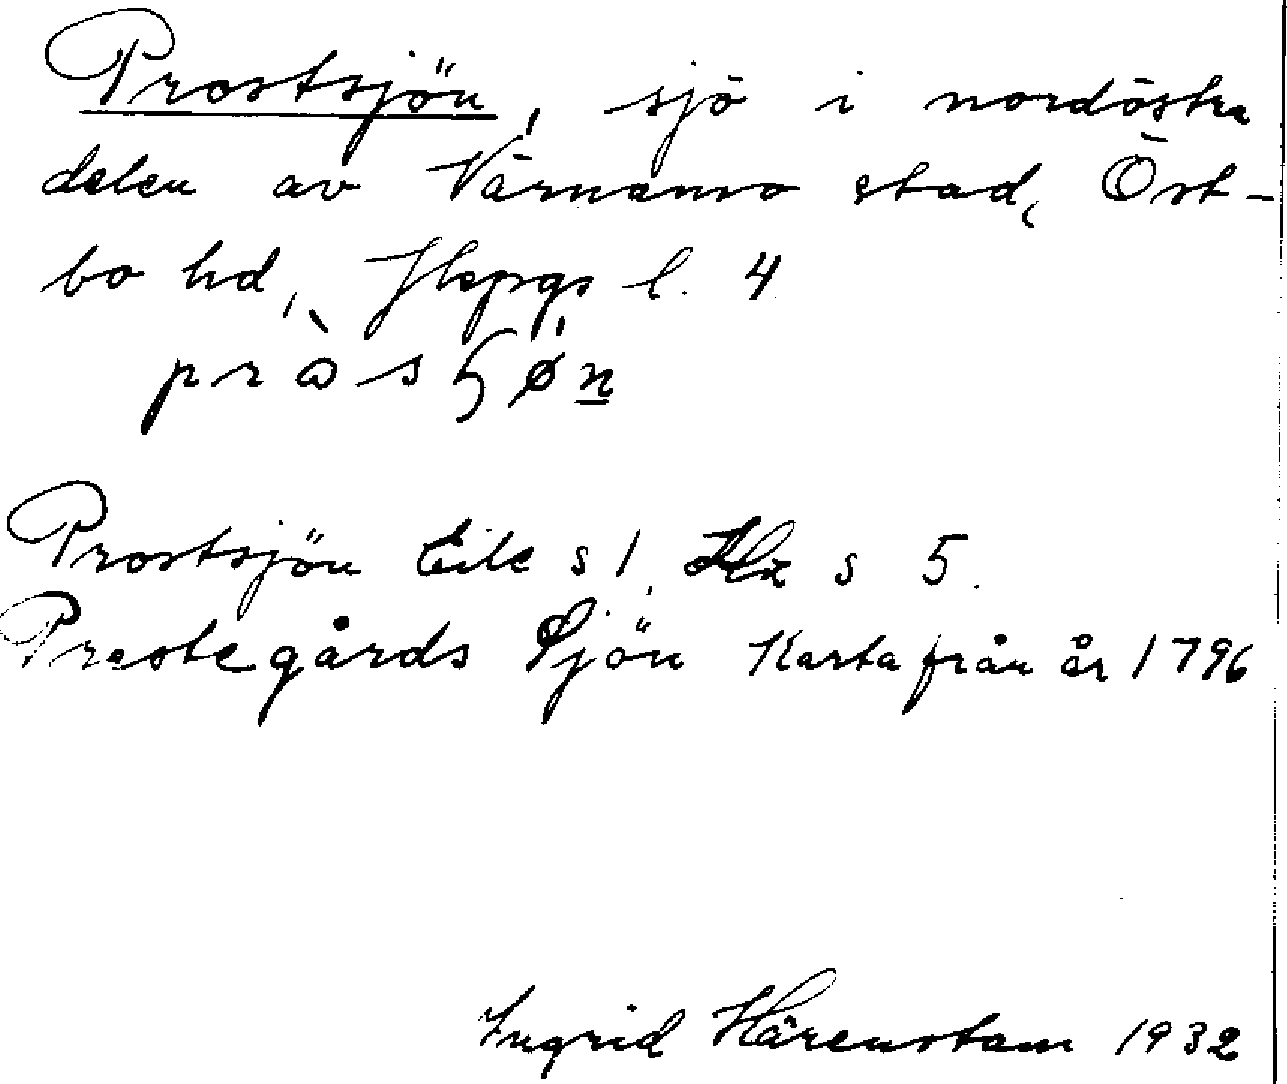 Prostsjön, sjö i nordöstra
delen av Värnamo stad, Öst-
bo hd, Jkpgs l. 4
Prostsjön s 1, s 5.
Prestegårds Sjön Karta från år 1796
Ingrid Härenstam 1932